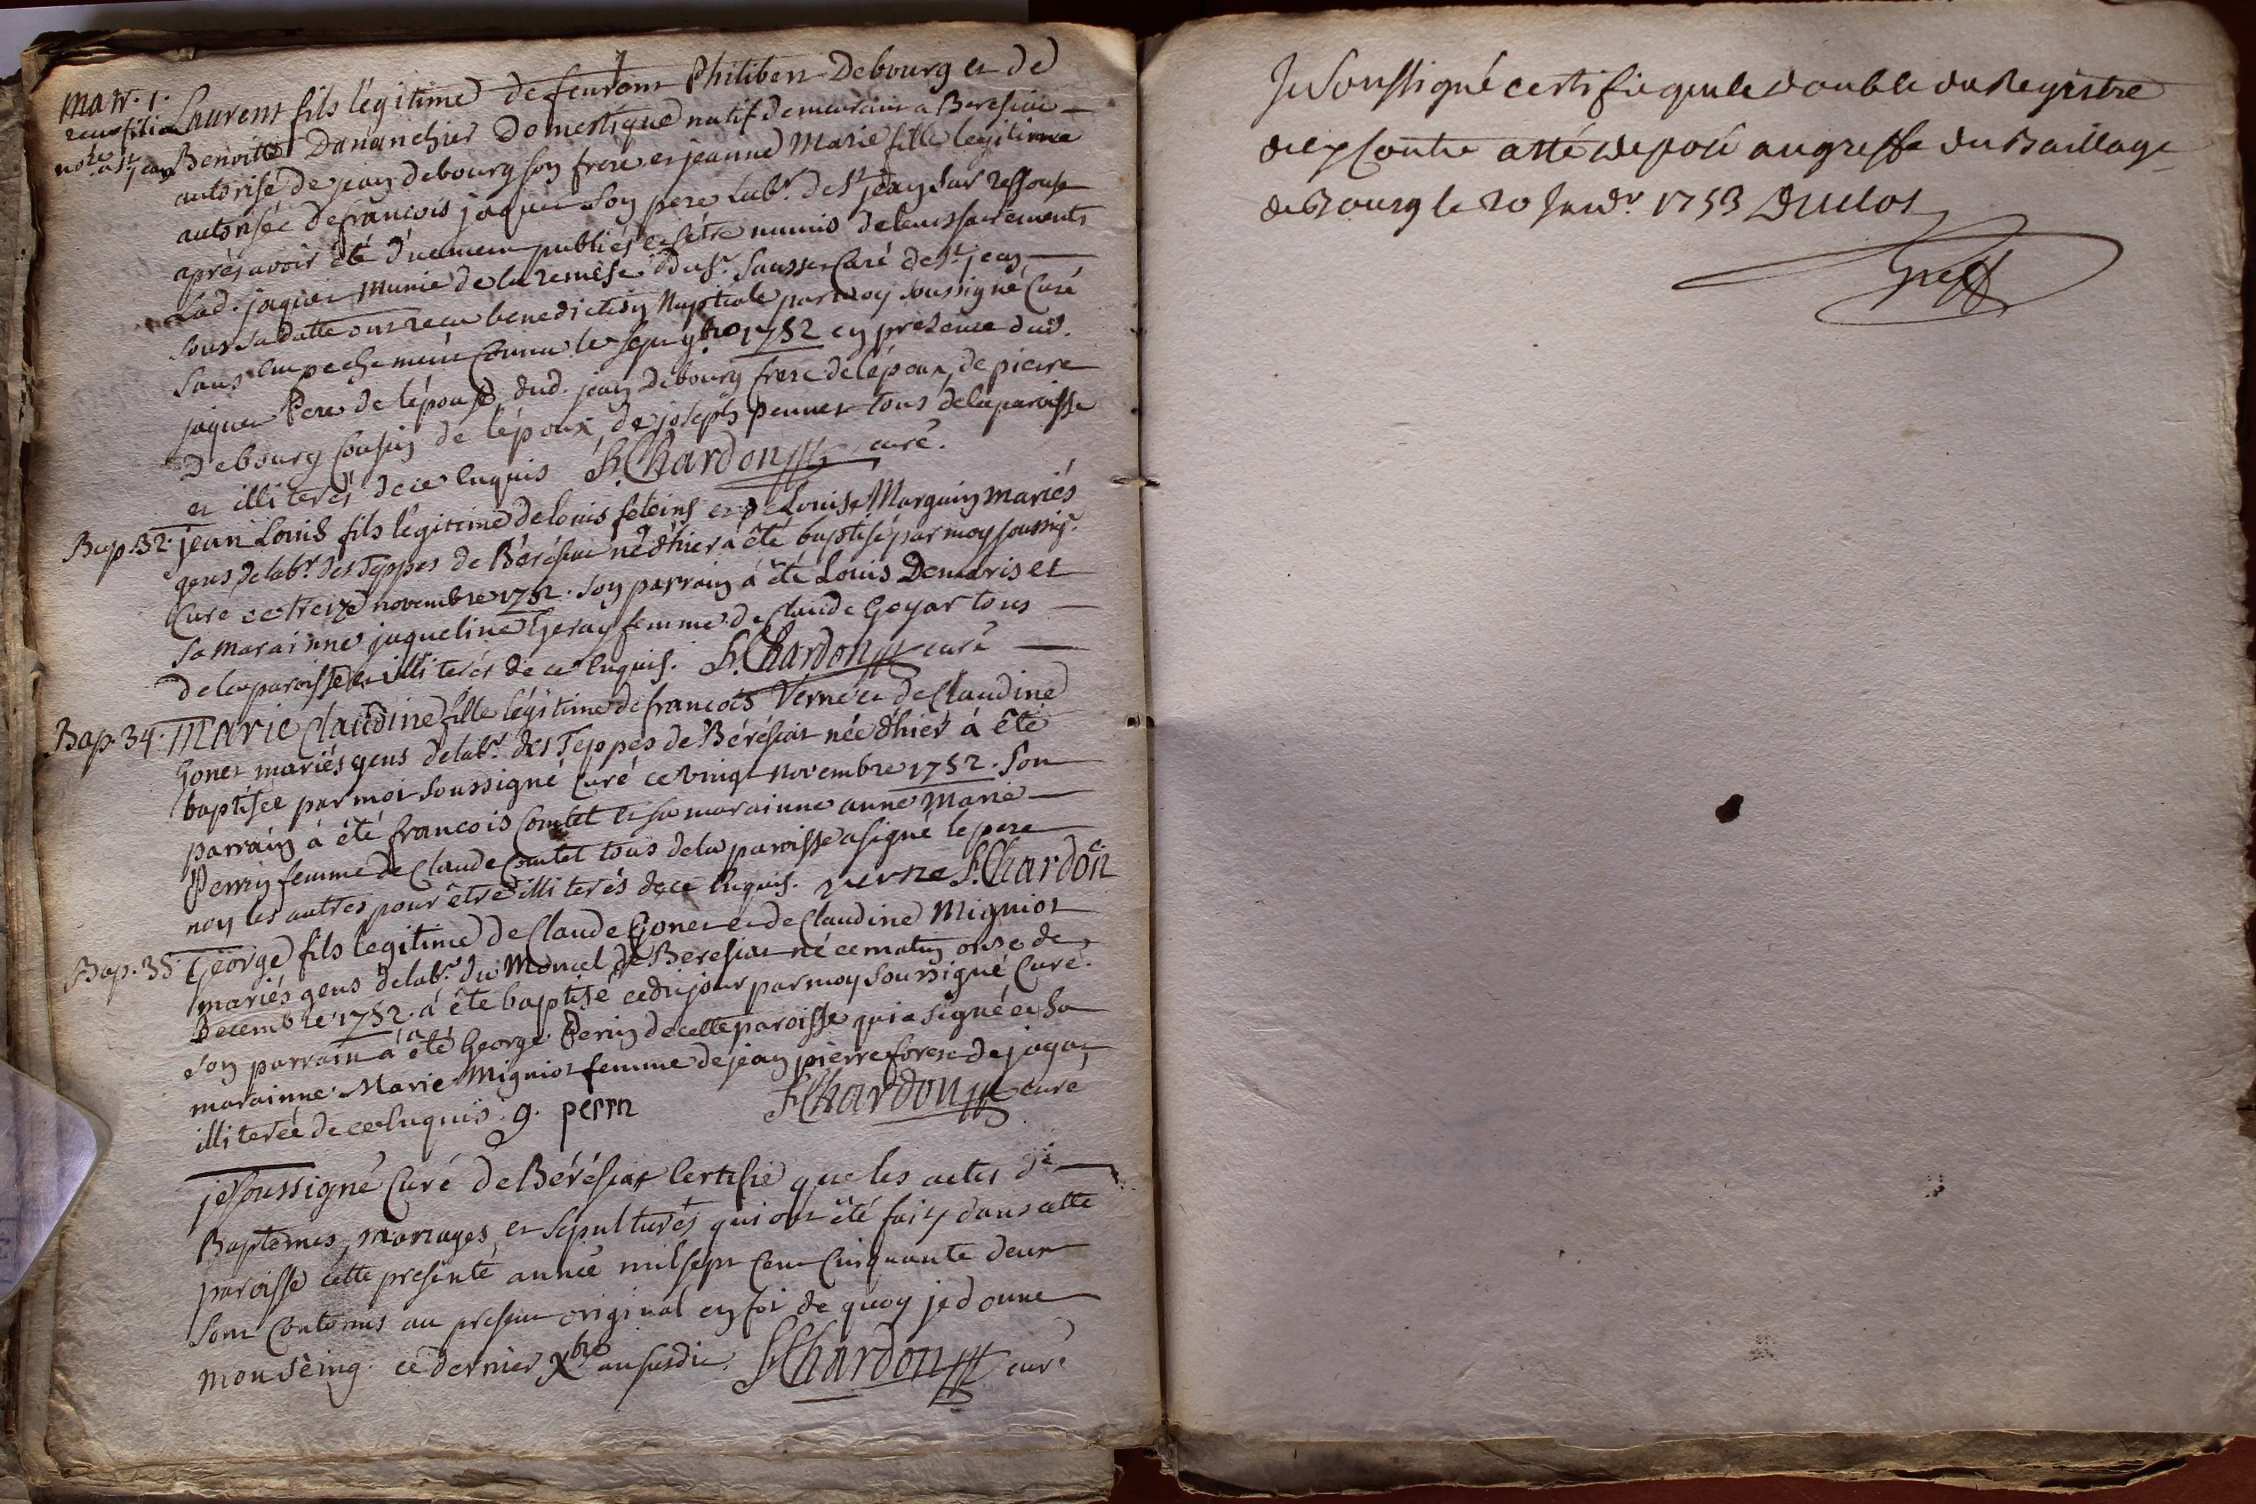 Mar. 1.
Laurent fils légitime de feu Philibert Debourg et de
Benoitte Dananchier Domestique natif demeurant a Beresiat
autorisé de jean debourg son frere et jeanne Marie fille legitime
autorisée de francois jaquet son pere lab.r de st jean sur ressouse
après avoir été duement publiés et s'être munis de leurs sacrements
lad. jaquet munie de la remise du sr. curé de st jean
sous sa datte ont recu benediction Nuptiale par moy soussigné Curé
sans empechement connu le sept 9bre 1752 en presence dud.
jaquet Pere de l'épouse, dud. jean debourg frere de l'époux, de pierre
Debourg Cousin de l'époux, de joseph pennet tous de la paroisse
et illiterés de ce enquis F. Chardon curé.
Bap. 32. jean Louis fils légitime de louis feleins et de Louise Marguin mariés
gens de lab.r des Teppes de Bérésiat né d'hier à été baptisé par moy soussig.
Curé ce treize novembre 1752. son parrain à été Louis Demaris et
sa marainne jaqueline femme de Claude Goyar tous
de la paroisse et illiterés de ce enquis. F. Chardon curé
Bap. 34. Marie Claudine fille légitime de francois Verne et de Claudine
Gonet mariés gens de lab.r des Teppes de Bérésiat née d'hier à été
baptisée par moi soussigné Curé ce vingt novembre 1752. son
parrain à été francois Comtet et sa marainne anne Marie
Perrin femme de Claude Comtet tous de la paroisse a signé le pere
non les autres pour être illiterés de ce enquis. verne F. Chardon
Bap. 35. George fils legitime de Claude Gonet et de Claudine Migniot
mariés gens de lab.r du Moncel de Beresiat né ce matin onze de
Decembre 1752. a été baptisé ce dit jour par moy soussigné Curé.
son parrain à été George Perrin de cette paroisse qui a signé et sa
marainne Marie Migniot femme de jean pierre forest de jayat
illiterée de ce enquis. g. perrn F. Chardon curé
je soussigné Curé de Bérésiat Certifie que les actes de
Baptemes, mariages, et sépultures qui ont été faits dans cette
paroisse cette presente année mil sept cent cinquante deux
sont contenus au present original en foi de quoy je donne
mon sèing. ce dernier Xbre an susdit. F. Chardon curé
Je soussigné certifie que le double du Registre
cy contre a été deposé au greffe du Baillage
de Bourg le 20 Janvr. 1753 Duclos
Greff